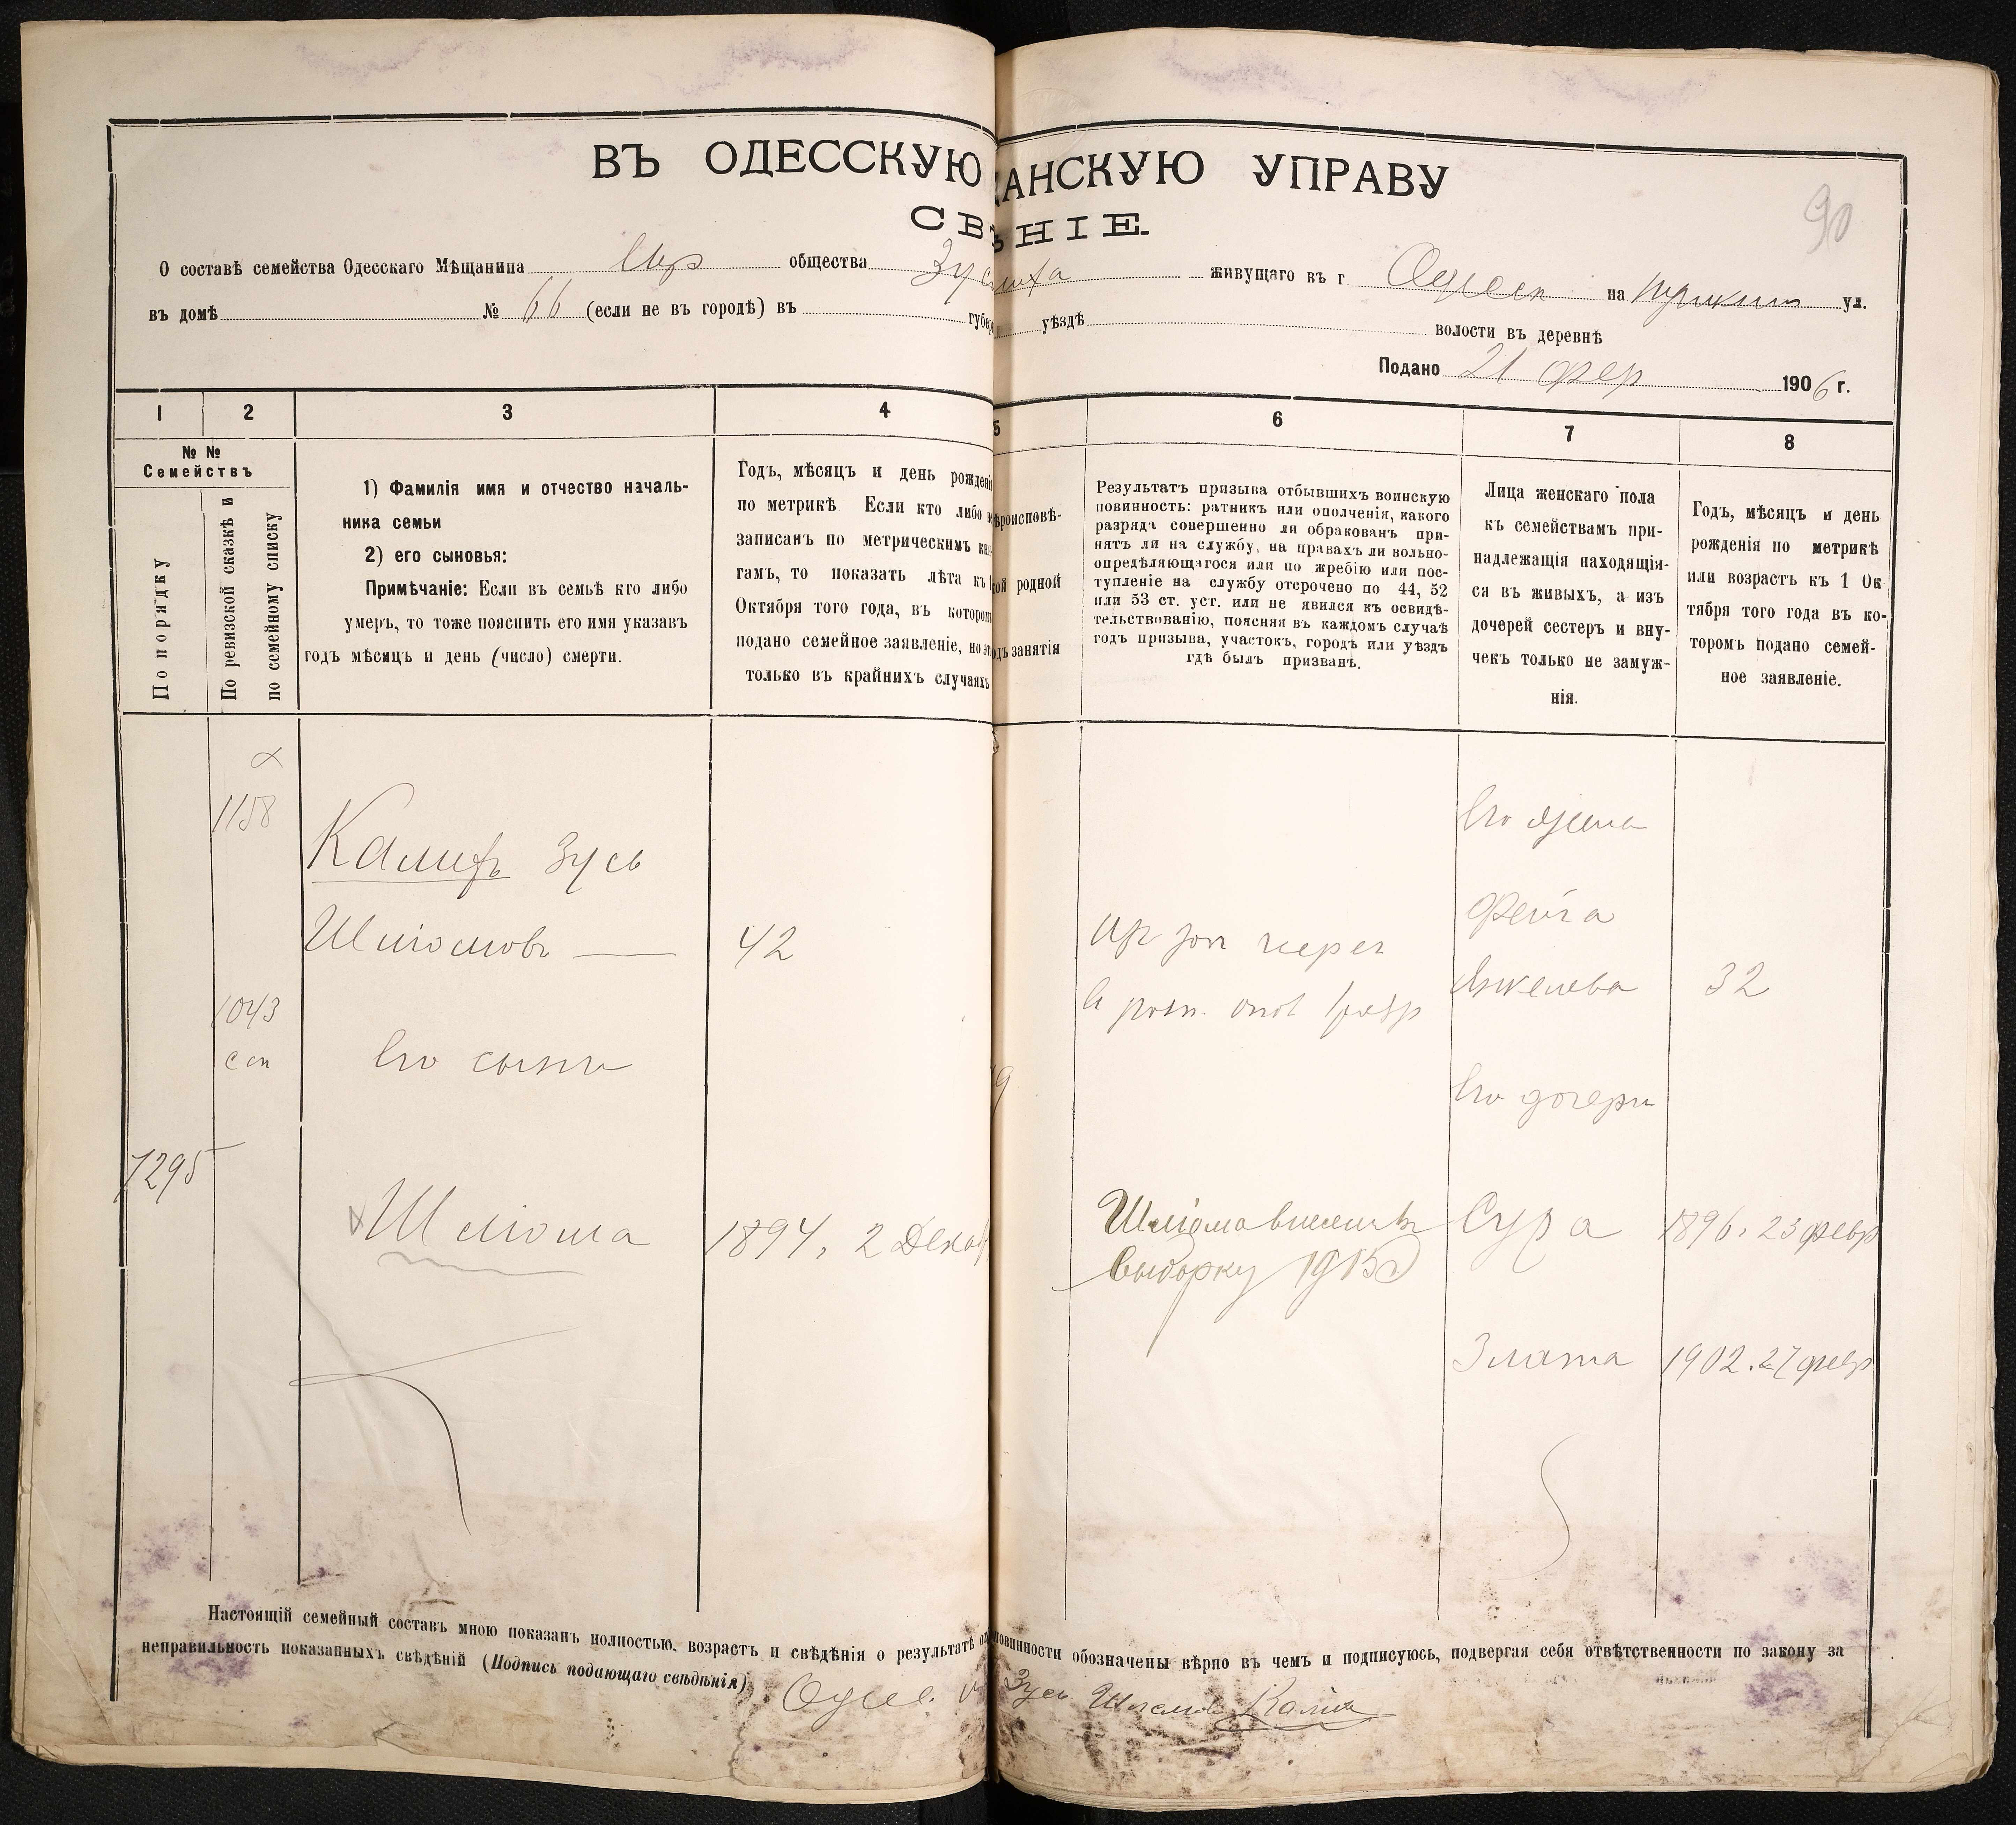 ВЪ ОДЕССКУЮ АНСКУЮ УПРАВУ
СВѢНІЕ.
90
О составѣ семейства Одесскаго Мѣщанина Евр общества живущаго въ г Одессѣ на ул.
въ домѣ № 66 (если не въ городѣ) въ губер уѣздѣ волости въ деревнѣ
Подано 21 фев 1906 г.
1 2 3 4 5 6 7 8
№ №
Семействъ
По порядку
По ревизской сказкѣ и
по семейному списку
1) Фамилія имя и отчество началь-
ника семьи
2) его сыновья:
Примѣчаніе: Если въ семьѣ кто либо
умеръ, то тоже пояснить его имя указавъ
годъ мѣсяцъ и день (число) смерти.
Годъ, мѣсяцъ и день рожденія
по метрикѣ Если кто либо не
записанъ по метрическимъ кни-
гамъ, то показать лѣта къ 1
Октября того года, въ которомъ
подано семейное заявленіе, но это
только въ крайнихъ случаяхъ
ѣроисповѣ-
кой родной
одъ занятія
Результатъ призыва отбывшихъ воинскую
повинность: ратникъ или ополченія, какого
разряда совершенно ли обракованъ при-
нятъ ли на службу, на правахъ ли вольно-
опредѣляющагося или по жребію или пос-
тупленіе на службу отсрочено по 44, 52
или 53 ст. уст. или не явился къ освидѣ-
тельствованію, поясняя въ каждомъ случаѣ
годъ призыва, участокъ, городъ или уѣздъ
гдѣ былъ призванъ.
Лица женскаго пола
къ семействамъ при-
надлежащія находящія-
ся въ живыхъ, а изъ
дочерей сестеръ и вну-
чекъ только не замуж-
нія.
Годъ, мѣсяцъ и день
рожденія по метрикѣ
или возрастъ къ 1 Ок
тября того года въ ко-
торомъ подано семей-
ное заявленіе.
1158
Калифъ Зусь
Шліомовъ 42
1043
с сп
Его сынъ
7295
Шліома 1894, 2 Декаб
Шліома внесенъ въ
выборку 1915
Его жена
Фейга
Янкелева 32
Его дочери
Сура 1896. 23 февр
Злата 1902. 27 февр
Настоящій семейный составъ мною показанъ полностью, возрастъ и свѣдѣнія о результатѣ повинности обозначены вѣрно въ чемъ и подписуюсь, подвергая себя отвѣтственности по закону за
неправильность показанныхъ свѣдѣній (Подпись подающаго свѣдѣнія) Зусь